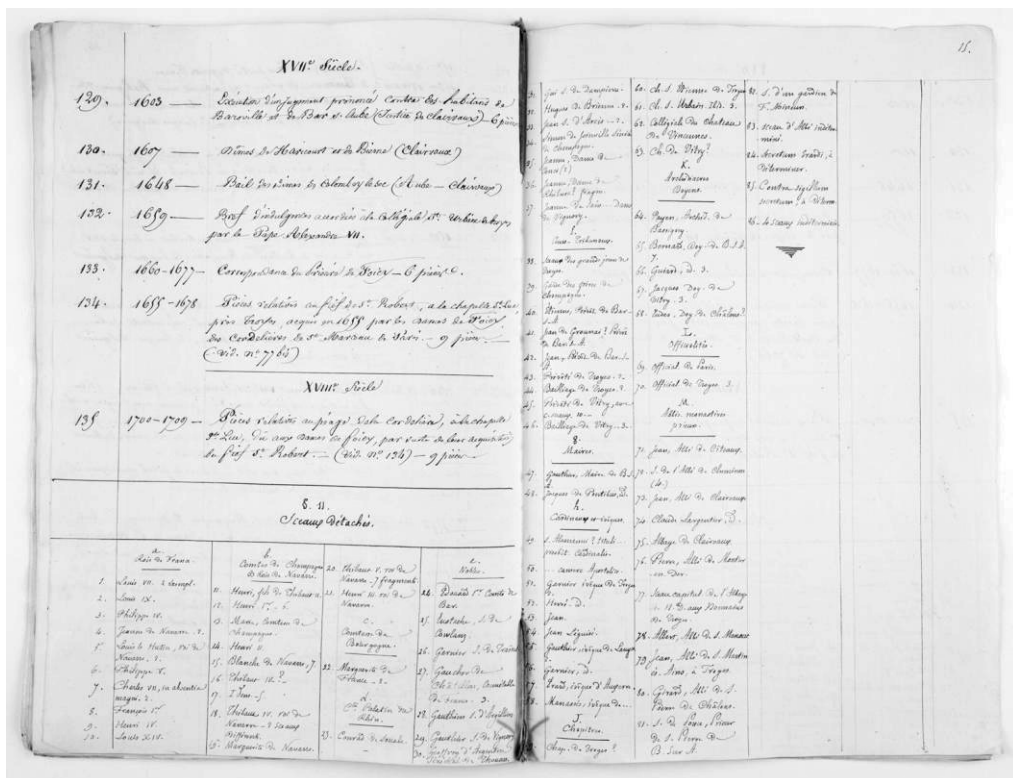 XVIIe Siècle.
129. 1603 — Exécution d'un jugement prononcé contre les habitans de
Baroville et de Bar s. Aube (Justice de Clairvaux) — 6 pièces
130. 1607 — Dimes de Haricourt et de Bienne (Clairvaux)
131. 1648 — Bail des dimes de Colombey le sec (Aube — Clairvaux)
132. 1659 — Bref d'indulgences accordées à la Collégiale St. Urbain de Troyes
par le Pape Alexandre VII.
133. 1660-1677 — Correspondance du Prieuré de Foicy — 6 pièces.
134. 1655-1678 Pièces relatives au fief de St. Robert, à la chapelle St. Luc
près Troyes, acquis en 1655 par les dames de Foicy
des Cordelières de St. Marceau de Paris — 9 pièces
(Vid. no 77 bis)
XVIIIe Siècle
135 1700-1709 — Pièces relatives au péage de la Cordelière, à la chapelle
St. Luc, dû aux dames de Foicy, par suite de leur acquisition
du fief St. Robert. — (Vid. No. 134) — 9 pièces
§. 11.
Sceaux détachés.
a.
Rois de France.
1. Louis VII. 2 exempl.
2. Louis IX.
3. Philippe IV.
4. Jeanne de Navarre. 2.
5. Louis le Hutin, roi de
Navarre. 2.
6. Philippe V.
7. Charles VII, en absentia
magni. 2.
8. François Ier
9. Henri IV.
10. Louis XIV.
b.
Comtes de Champagne
et Rois de Navarre.
11. Henri, fils de Thibaut
12. Henri Ier. 5.
13. Marie, Comtesse de
Champagne.
14. Henri II
15. Blanche de Navarre, 7
16 Thibaut IV.?
17. Idem
18. Thibaut IV. roi de
Navarre — 2 sceaux
différents.
19. Marguerite de Navarre.
20. Thibaut V. roi de
Navarre. 7 fragments
21. Henri III. roi de
Navarre.
c.
Comtesse de
Bourgogne.
22. Marguerite de
France. 2.
d.
Cte. Palatin du
Rhin.
23. Conrad de Souabe.
e.
Nobles.
24. Edouard Ier Comte de
Bar.
25. Eustache, S. de
Conflans
26. Garnier S. de
27. Gaucher de
Châtillon, Connétable
de France. 3.
28. Gauthier S. d'
29. Gauthier S. de Vignory
30. Geoffroy d'Argenton
15.
31. Gui s. de Dampierre.
32. Hugues de Brienne. 2.
33. Jean S. d'Arcis. 2.
34. Simon de Joinville Sénéch.
de Champagne.
35. Jeanne, Dame de
36. Jeanne, Dame de
37. Jeanne de Dame
de Vignory.
f.
38. Sceau des grands jours de
Troyes.
39. Gardes des foires de
Champagne.
40. Etienne, Prévôt de Bar
s. A.
41. Jean de Prévôt
de Bar s. A.
42. Jean, Prévôt de Bar. s.
A.
43. Prévôté de Troyes. 2.
44. Bailliage de Troyes. 2.
45. Prévôté de Vitry,
46. Bailliage de Vitry. 3.
g.
Maires.
47. Gauthier, Maire de B. S.
A.
48. Jacques de
h.
Cardinaux et évêques.
49.
Cardinales.
50.
51. Garnier évêque de Troyes
52. Hervé. d.
53. Jean.
54. Jean Léguisé.
55. Gauthier, évêque de Langres
56. Garnier, d.
57. évêque d'Auxerre.
58. Manassès, évêque de...
j.
Chapitres.
Chap. de Troyes?
60. Ch. S. Etienne de Troyes
61. Ch. S. Urbain. Ibid. 3.
62. Collégiale du Chateau
de Vincennes.
63. Ch. de Vitry?
K.
Archidiacres
Doyens.
64. Payen, Archid. de
65. Bernard, Doy. de B. s.
66. Guiard, d. 3.
67. Jacques Doy. de
Vitry. 3.
68. Eudes, Doy. de Châlons?
L.
Officialités.
69. Official de Paris.
70. Official de Troyes. 3.
M.
Abbés, monastères
prieurs.
71. Jean, Abbé de Citeaux.
72. S. de l'Abbé de Clairvaux
(4.)
73. Jean, Abbé de Clairvaux
74. Claude Largentier, d.
75. Abbaye de Clairvaux.
76. Pierre, Abbé de Montier
en Der.
77. Sceau capital. de l'Abbaye
N. D. aux Nonnains
de Troyes.
78. Albert, Abbé de S. Memmie
79. Jean, Abbé de S. Martin
ès Aires, à Troyes
80. Girard, Abbé de S.
Pierre de Châlons.
81. S. de Pierre, Prieur
de S. Pierre de
B. Sur A.
82. S. d'un gardien de
F. Mineurs.
83. Sceau d'Abbé indéter-
miné.
84. Secretum brandi, à
déterminer.
85. Contra sigillum
secretum, à déterm.
86. 4 sceaux indéterminés